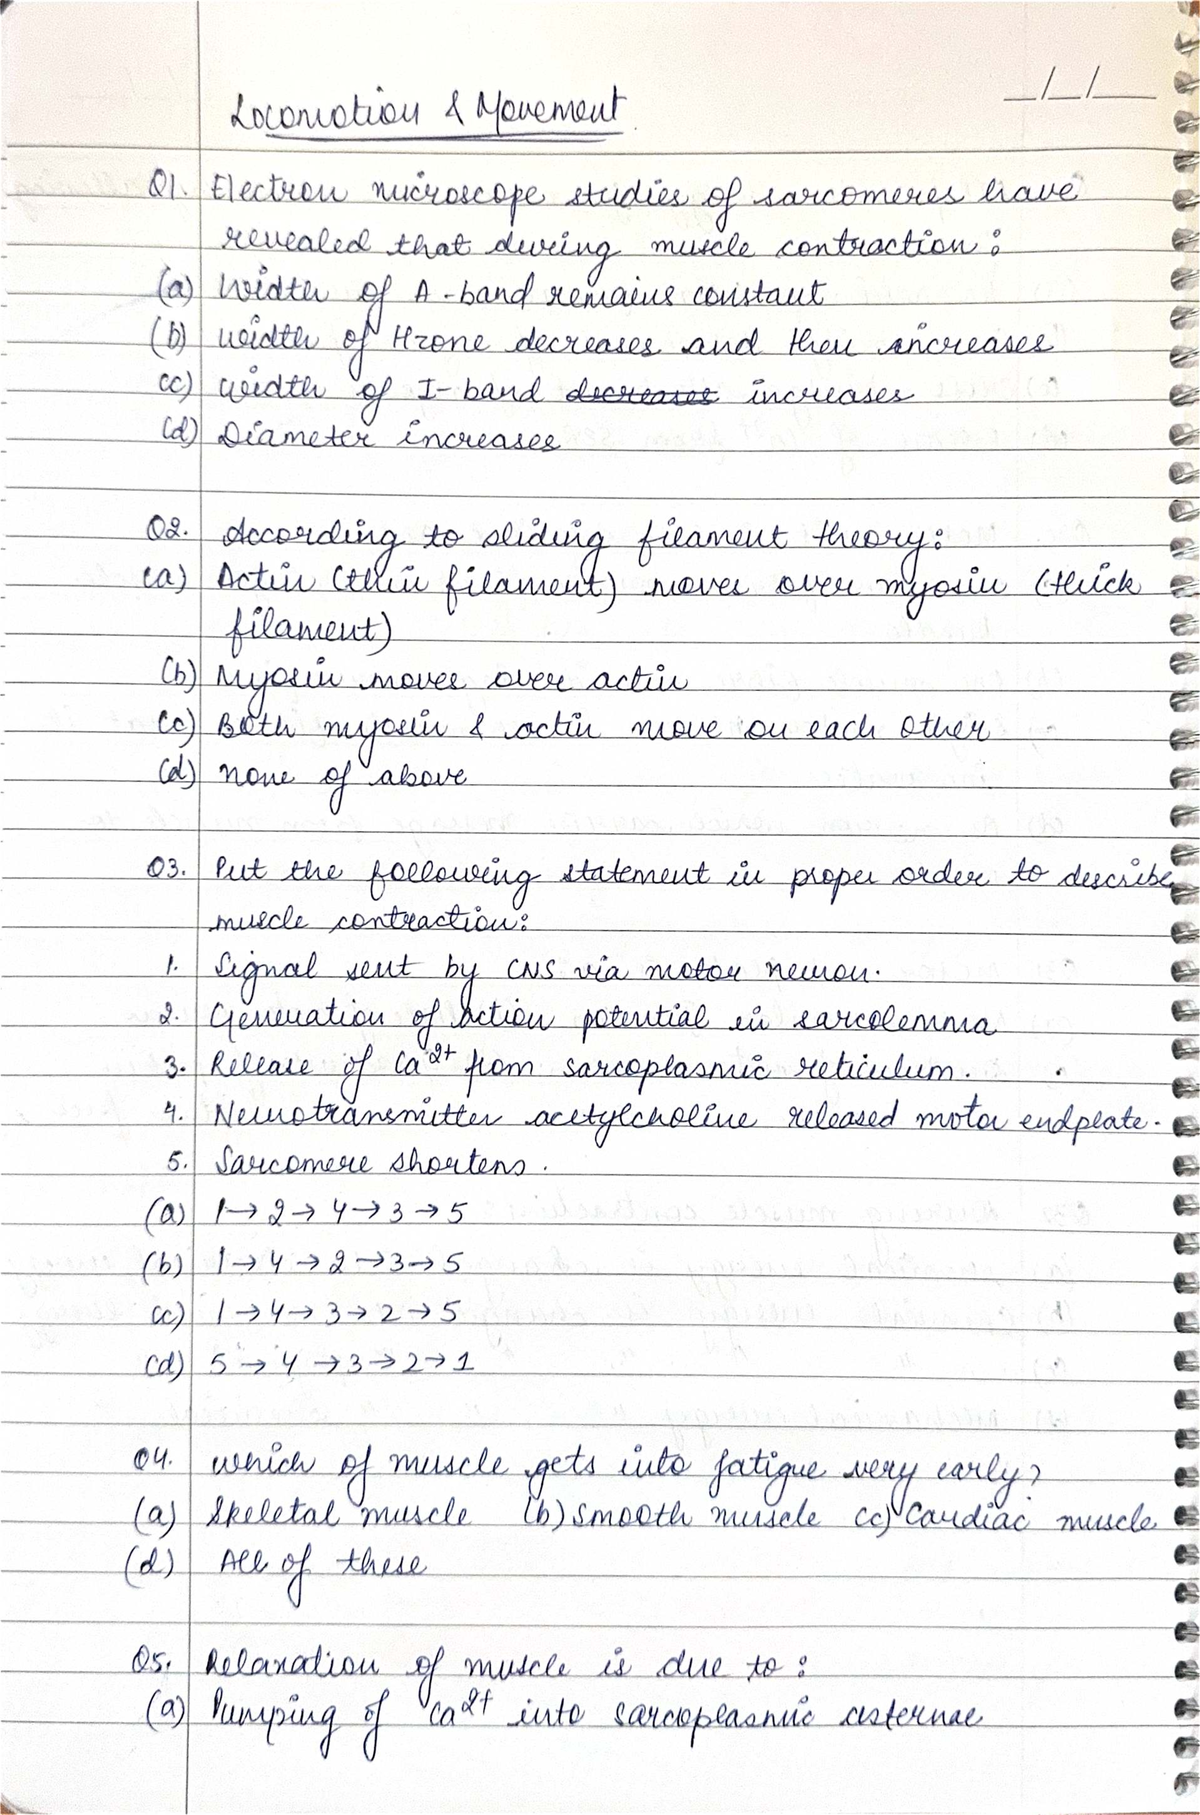 _/_/__
Locomotion & Movement
Q1. Electron microscope studies of sarcomeres have
revealed that during muscle contraction:
(a) Width of A-band remains constant
(b) width of Hzone decreases and then increases
(c) width of I-band decreases increases
(d) Diameter increases
Q2. According to sliding filament theory:
(a) Actin (thin filament) moves over myosin (thick
filament)
(b) Myosin moves over actin
(c) Both myosin & actin move on each other
(d) none of above
Q3. Put the following statement in proper order to describe
muscle contraction:
1. Signal sent by CNS via motor neuron.
2. Generation of action potential in sarcolemma
3. Release of Ca2+ from sarcoplasmic reticulum.
4. Neurotransmitter acetylcholine released motor endplate.
5. Sarcomere shortens.
(a) 1→2→4→3→5
(b) 1→4→2→3→5
(c) 1→4→3→2→5
(d) 5→4→3→2→1
Q4. which of muscle gets into fatigue very early?
(a) Skeletal muscle (b) Smooth muscle (c) Cardiac muscle
(d) All of these
Q5. Relaxation of muscle is due to:
(a) Pumping of Ca2+ into sarcoplasmic cisternae